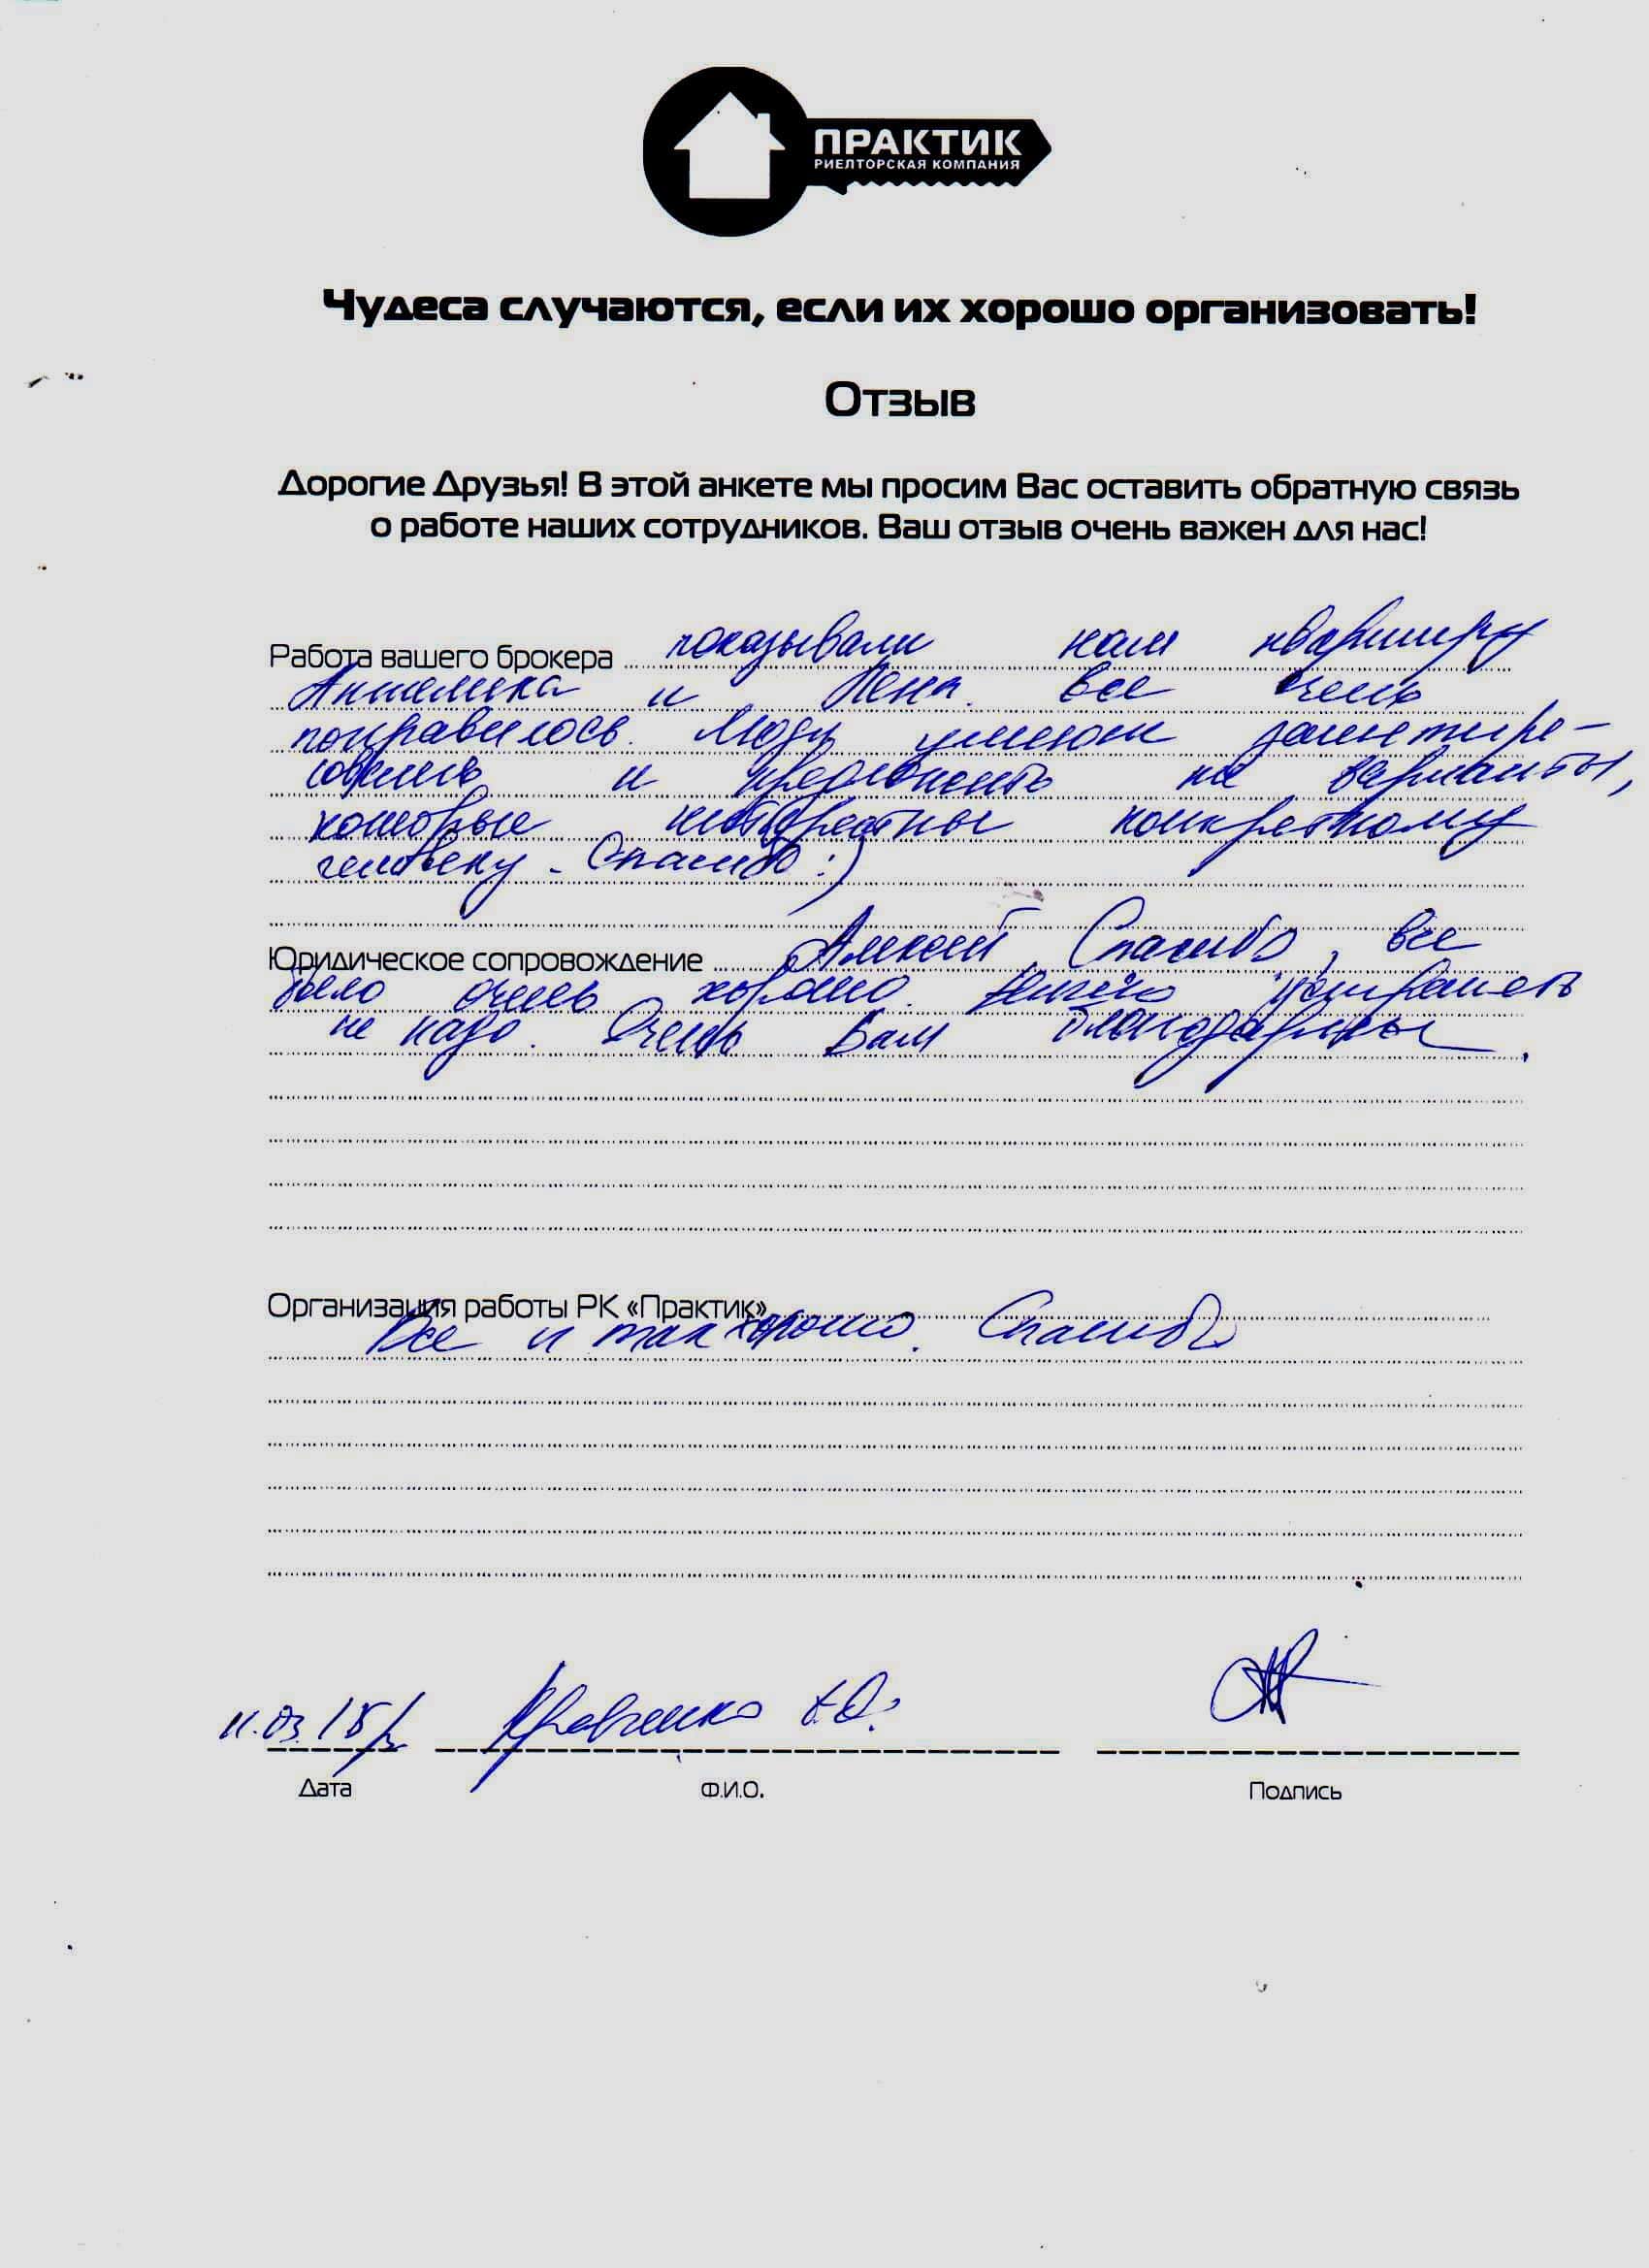 ПРАКТИК
РИЕЛТОРСКАЯ КОМПАНИЯ
Чудеса случаются, если их хорошо организовать!
Отзыв
Дорогие Друзья! В этой анкете мы просим Вас оставить обратную связь
о работе наших сотрудников. Ваш отзыв очень важен для нас!
Работа вашего брокера показывали нам квартиру
Анжелика и Лена. Все очень
понравилось. Люди умеют заинтире-
совать и предложить те варианты,
которые интересны конкретному
человеку. Спасибо :)
Юридическое сопровождение Алексей, Спасибо, все
было очень хорошо. Ничего исправлять
не надо. Очень Вам благодарны.
Организация работы РК «Практик»
Все и так хорошо. Спасибо
11.03.15г. Кравченко
Дата Ф.И.О. Подпись